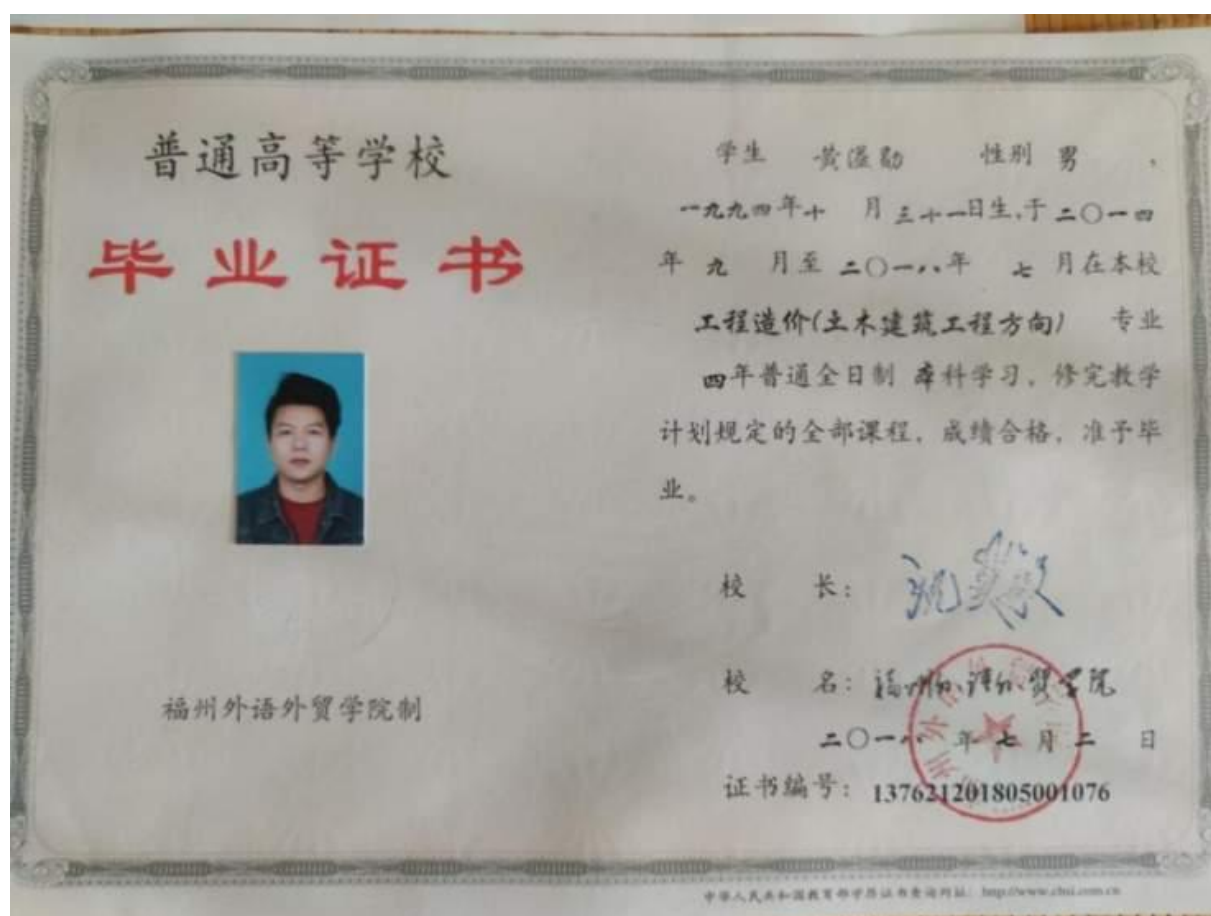 普通高等学校
毕业证书
福州外语外贸学院制
学生 黄溢勋 性别 男 ,
一九九四年十 月三十一日生,于二〇一四
年 九 月至二〇一八年 七 月在本校
工程造价(土木建筑工程方向) 专业
四年普通全日制 本科学习,修完教学
计划规定的全部课程,成绩合格,准予毕
业。
校 长:
校 名:福州外语外贸学院
二〇一八 年 七 月 二 日
证书编号:137621201805001076
中华人民共和国教育部学历证书查询网址: http://www.chsi.com.cn